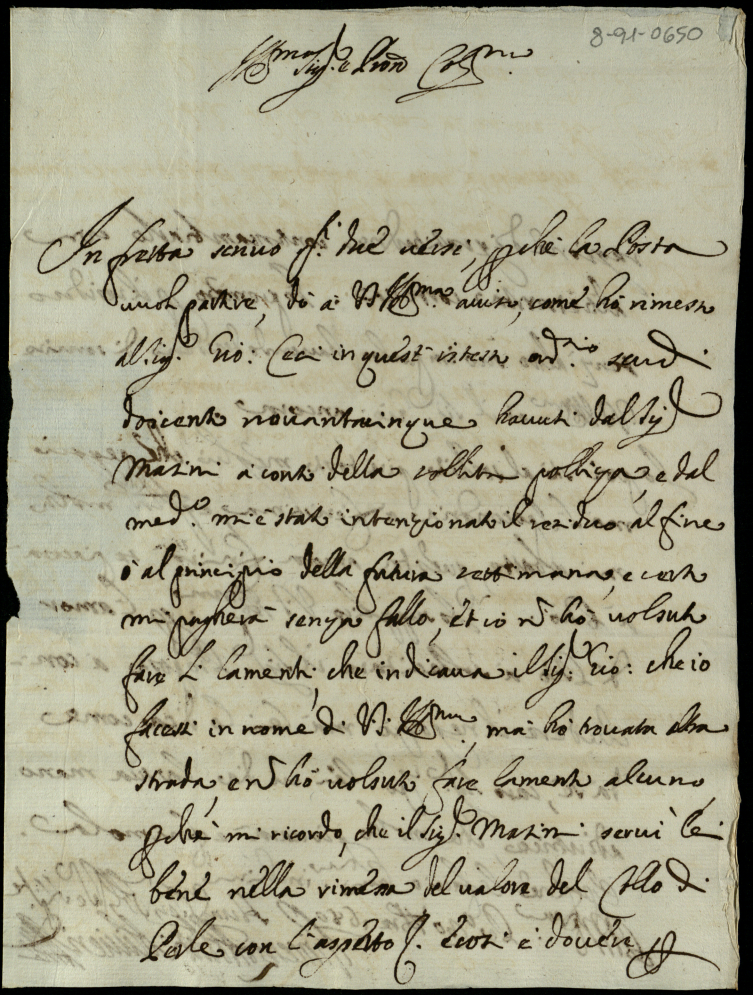 8-91-0650
Ill.mo Sig.r e Pron Col.mo
In fretta scrivo q.ti due versi, p chè la Posta
vuol partire, dò à V. Ill.ma aviso, come hò rimesso
al Sig.r Gio: Ceci in quest' istesso ord.rio scudi
doicento novantacinque havuti dal Sig.r
Masini à conto della solita polliza, e dal
med.o mi è stato intenzionato il residuo al fine
ò al principio della futura settimana, e certo
mi pagherà senza fallo, et io nō hò volsuto
fare li lamenti, che indicava il Sig.r Gio: che io
facessi in nome di V. Ill.ma, mà hò trovata altra
strada, e nō hò volsuto fare lamento alcuno,
p chè mi ricordo, che il Sig.r Masini servì lei
bene nella rimessa del valore del Collo di
Perle con l'aspetto e così è dovere